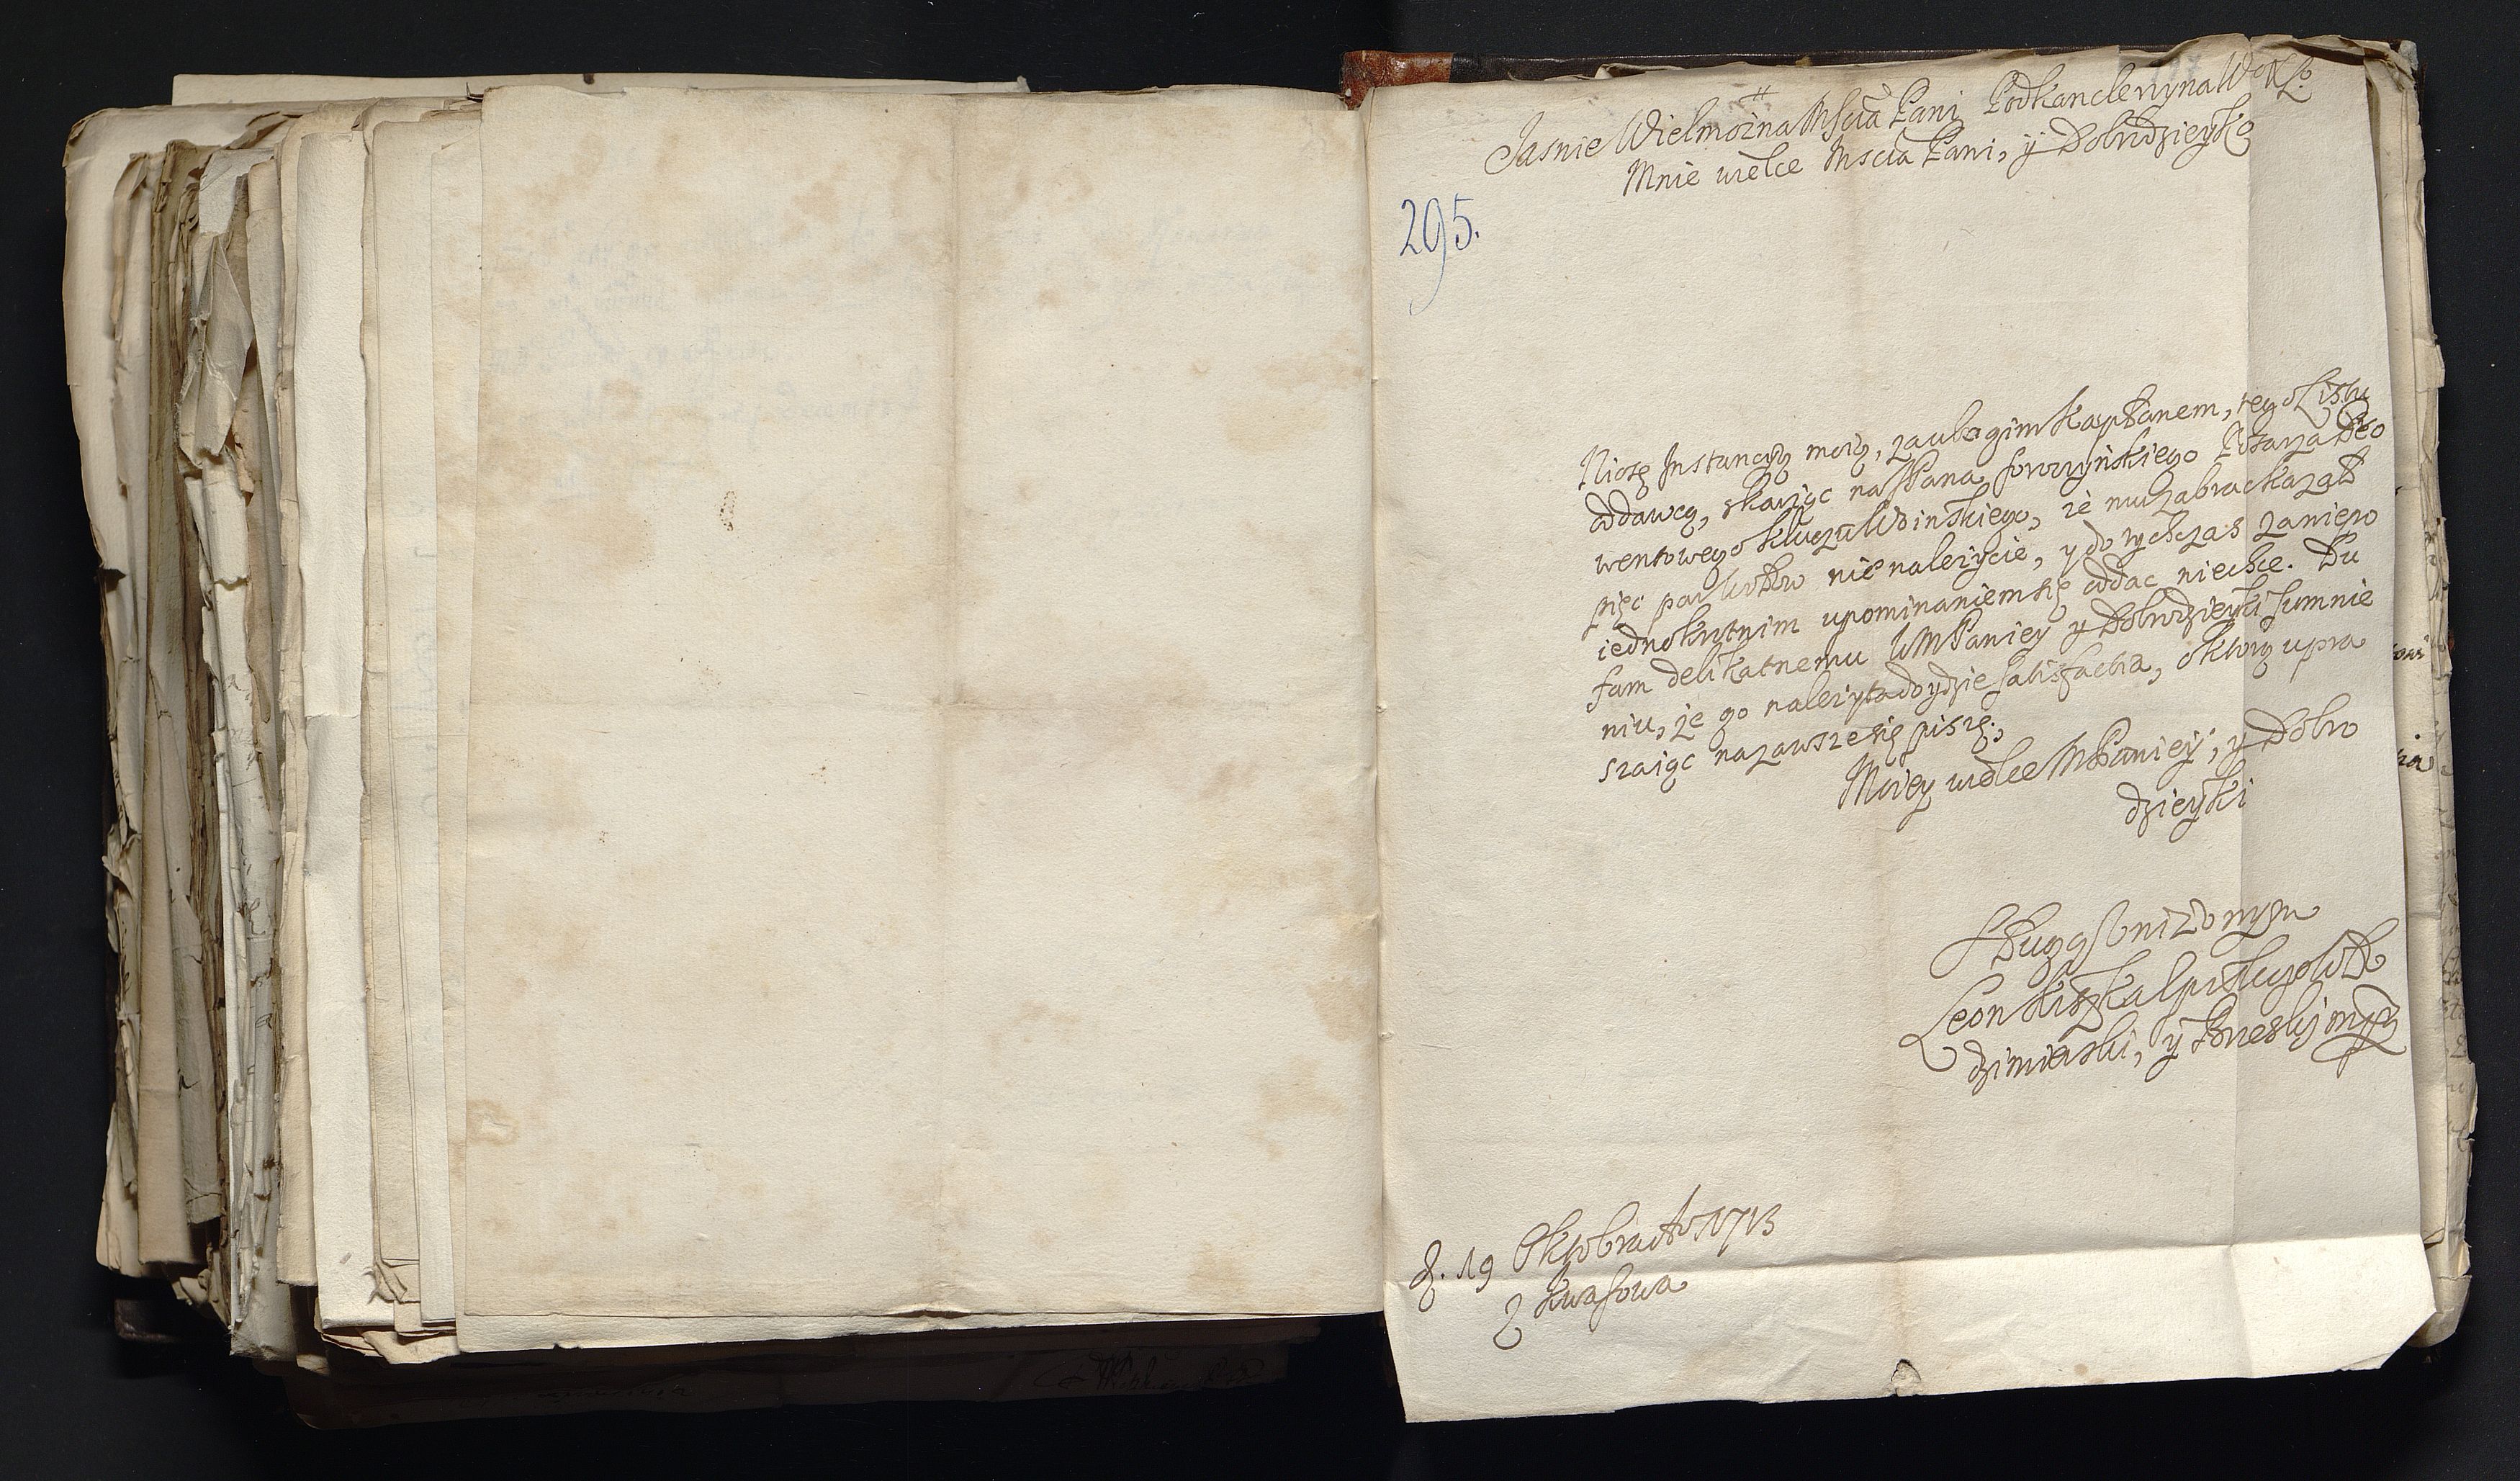 Jasnie Wielmożna Mscia Pani Podkanclerzyna W X L.
Mnie wielce Mscia Pani, y Dobrodzieyko
295.
Niosę Instancyą moią, za ubogim Kapłanem, tego Listu
oddawcą, skarząc na Pana Pisarza Pro
wentowego klucza Wdinskiego, że mu zabrac kazał
pięc par Wołow nie należycie, y do tychczas za niepo
iednokrotnim upominaniem się oddac niechce. Du
fam delikatnemu WMPaniey y Dobrodzieyki Sumnie
niu, że go należyta doydzie satisfactia, o ktorą upra
szaiąc na zawsze się piszę,
Moiey wielce MPaniey, y Dobro
dzieyki
Sługą uniżonym
Leon Kiszka Episkup Wło
dzimierski, y Brzeski mpp
d. 19 Oktobra Ao 1713
z Kwasowa